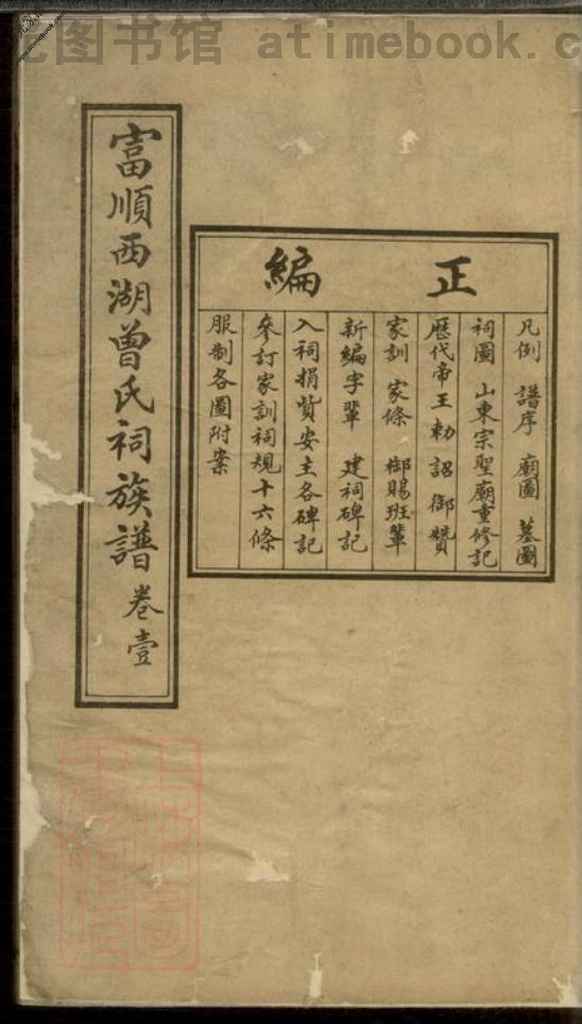 图书馆 atimebook.c
富順西湖曾氏祠族譜 卷壹
正編
凡例 譜序 廟圖 墓圖
祠圖 山東宗聖廟重修記
歷代帝王勅詔御贊
家訓 家條 御賜班輩
新編字輩 建祠碑記
入祠捐貲安主各碑記
參訂家訓祠規十六條
服制各圖附案